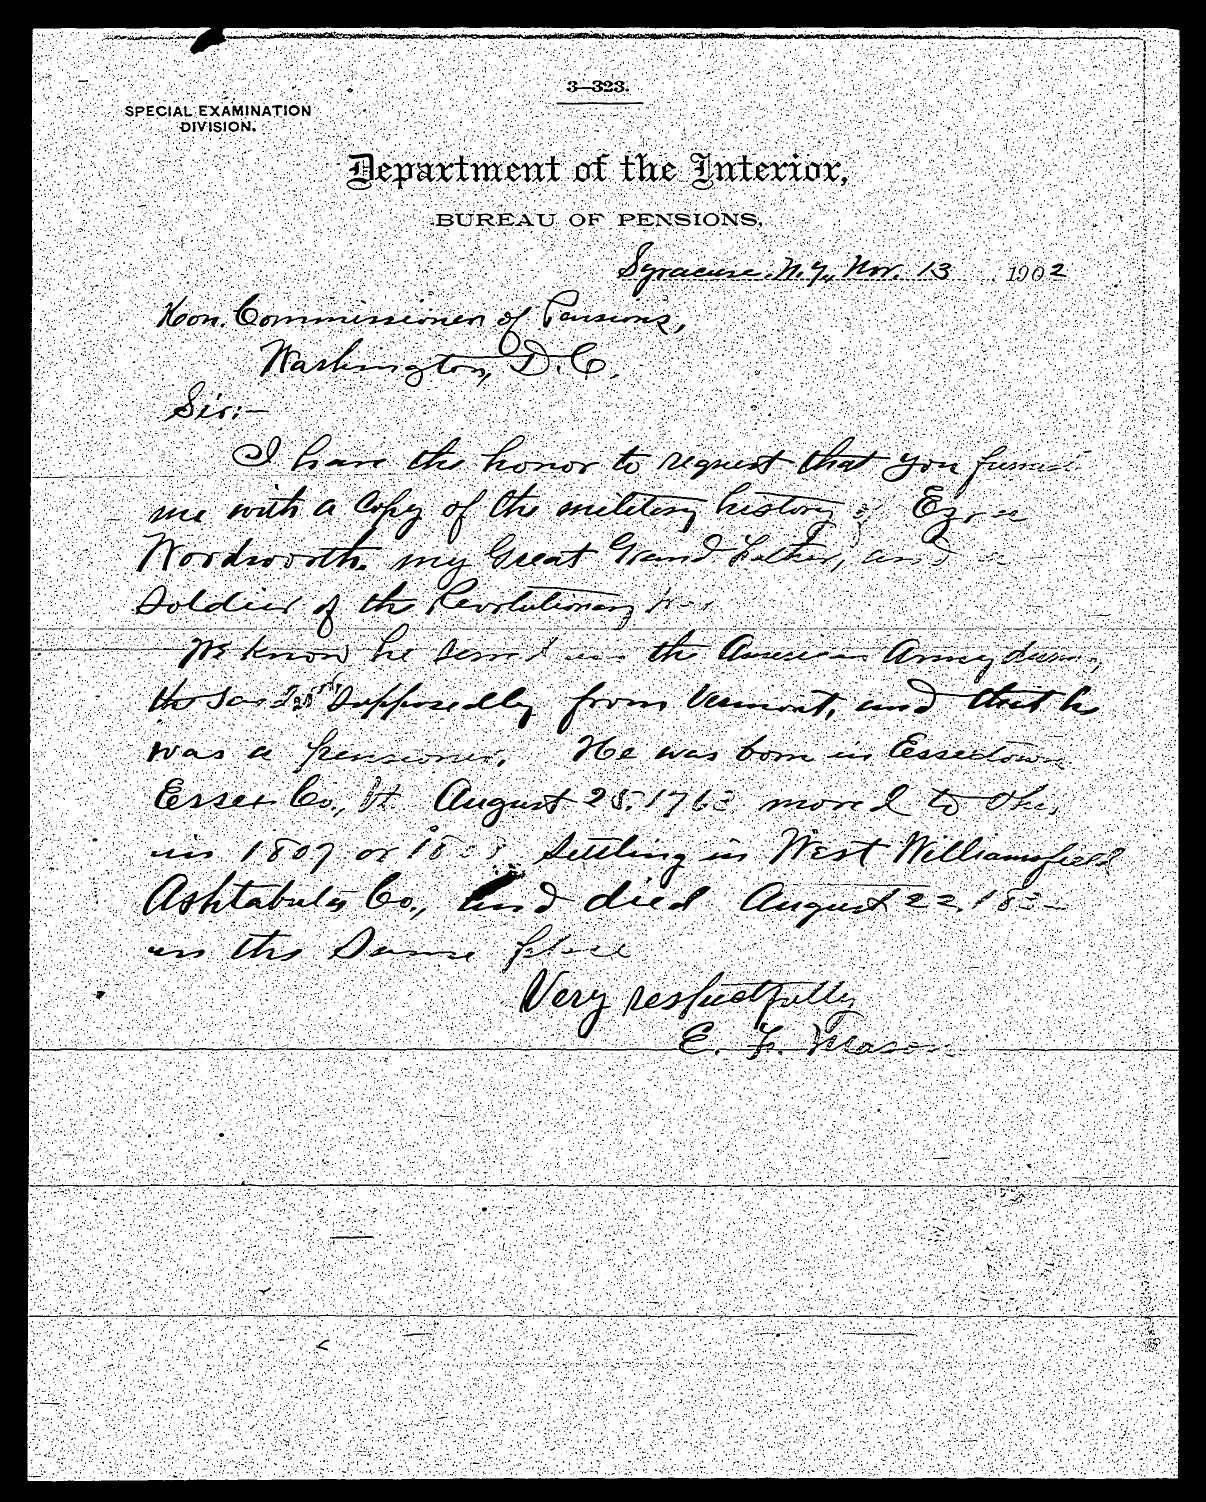 3—323.
SPECIAL EXAMINATION
DIVISION.
Department of the Interior,
BUREAU OF PENSIONS,
Syracuse, N.Y., Nov. 13, 1902
Hon. Commissioner of Pensions,
Washington, D.C.
Sir:—
I have the honor to request that you furnish
me with a copy of the military history of Ezra
Wordworth. my Great Grand Father, and a
Soldier of the Revolutionary War
We know he served in the American Army during
the Supposedly from Vermont, and that he
was a pensioner. He was born in Essextown
Essex Co., Vt. August 25, 1763 moved to Ohio,
in 1807 or Settling in West Williamsfield
Ashtabula Co., and died August 22,
in the Same place
Very respectfully
E. F. Mason